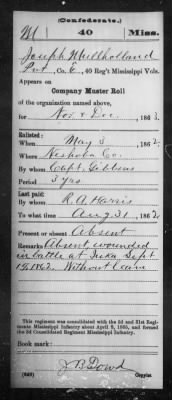 (Confederate.)
M 40 Miss.
Joseph Mullholland
Pvt, Co. E, 40 Reg't Mississippi Vols.
Appears on
Company Muster Roll
of the organization named above,
for Nov & Dec, 1862.
Enlisted:
When May 3, 1862.
Where Neshoba Co.
By whom Capt. Gibbens
Period 3 yrs
Last paid:
By whom R. A. Harris
To what time Aug 31, 1862.
Present or absent Absent
Remarks Absent, wounded
in battle at Iuka Sept
19, 1862. Without leave
This regiment was consolidated with the 3d and 31st Regiments Mississippi Infantry about April 9, 1865, and formed
the 3d Consolidated Regiment Mississippi Infantry.
Book mark:
J B Dowd
Copyist.